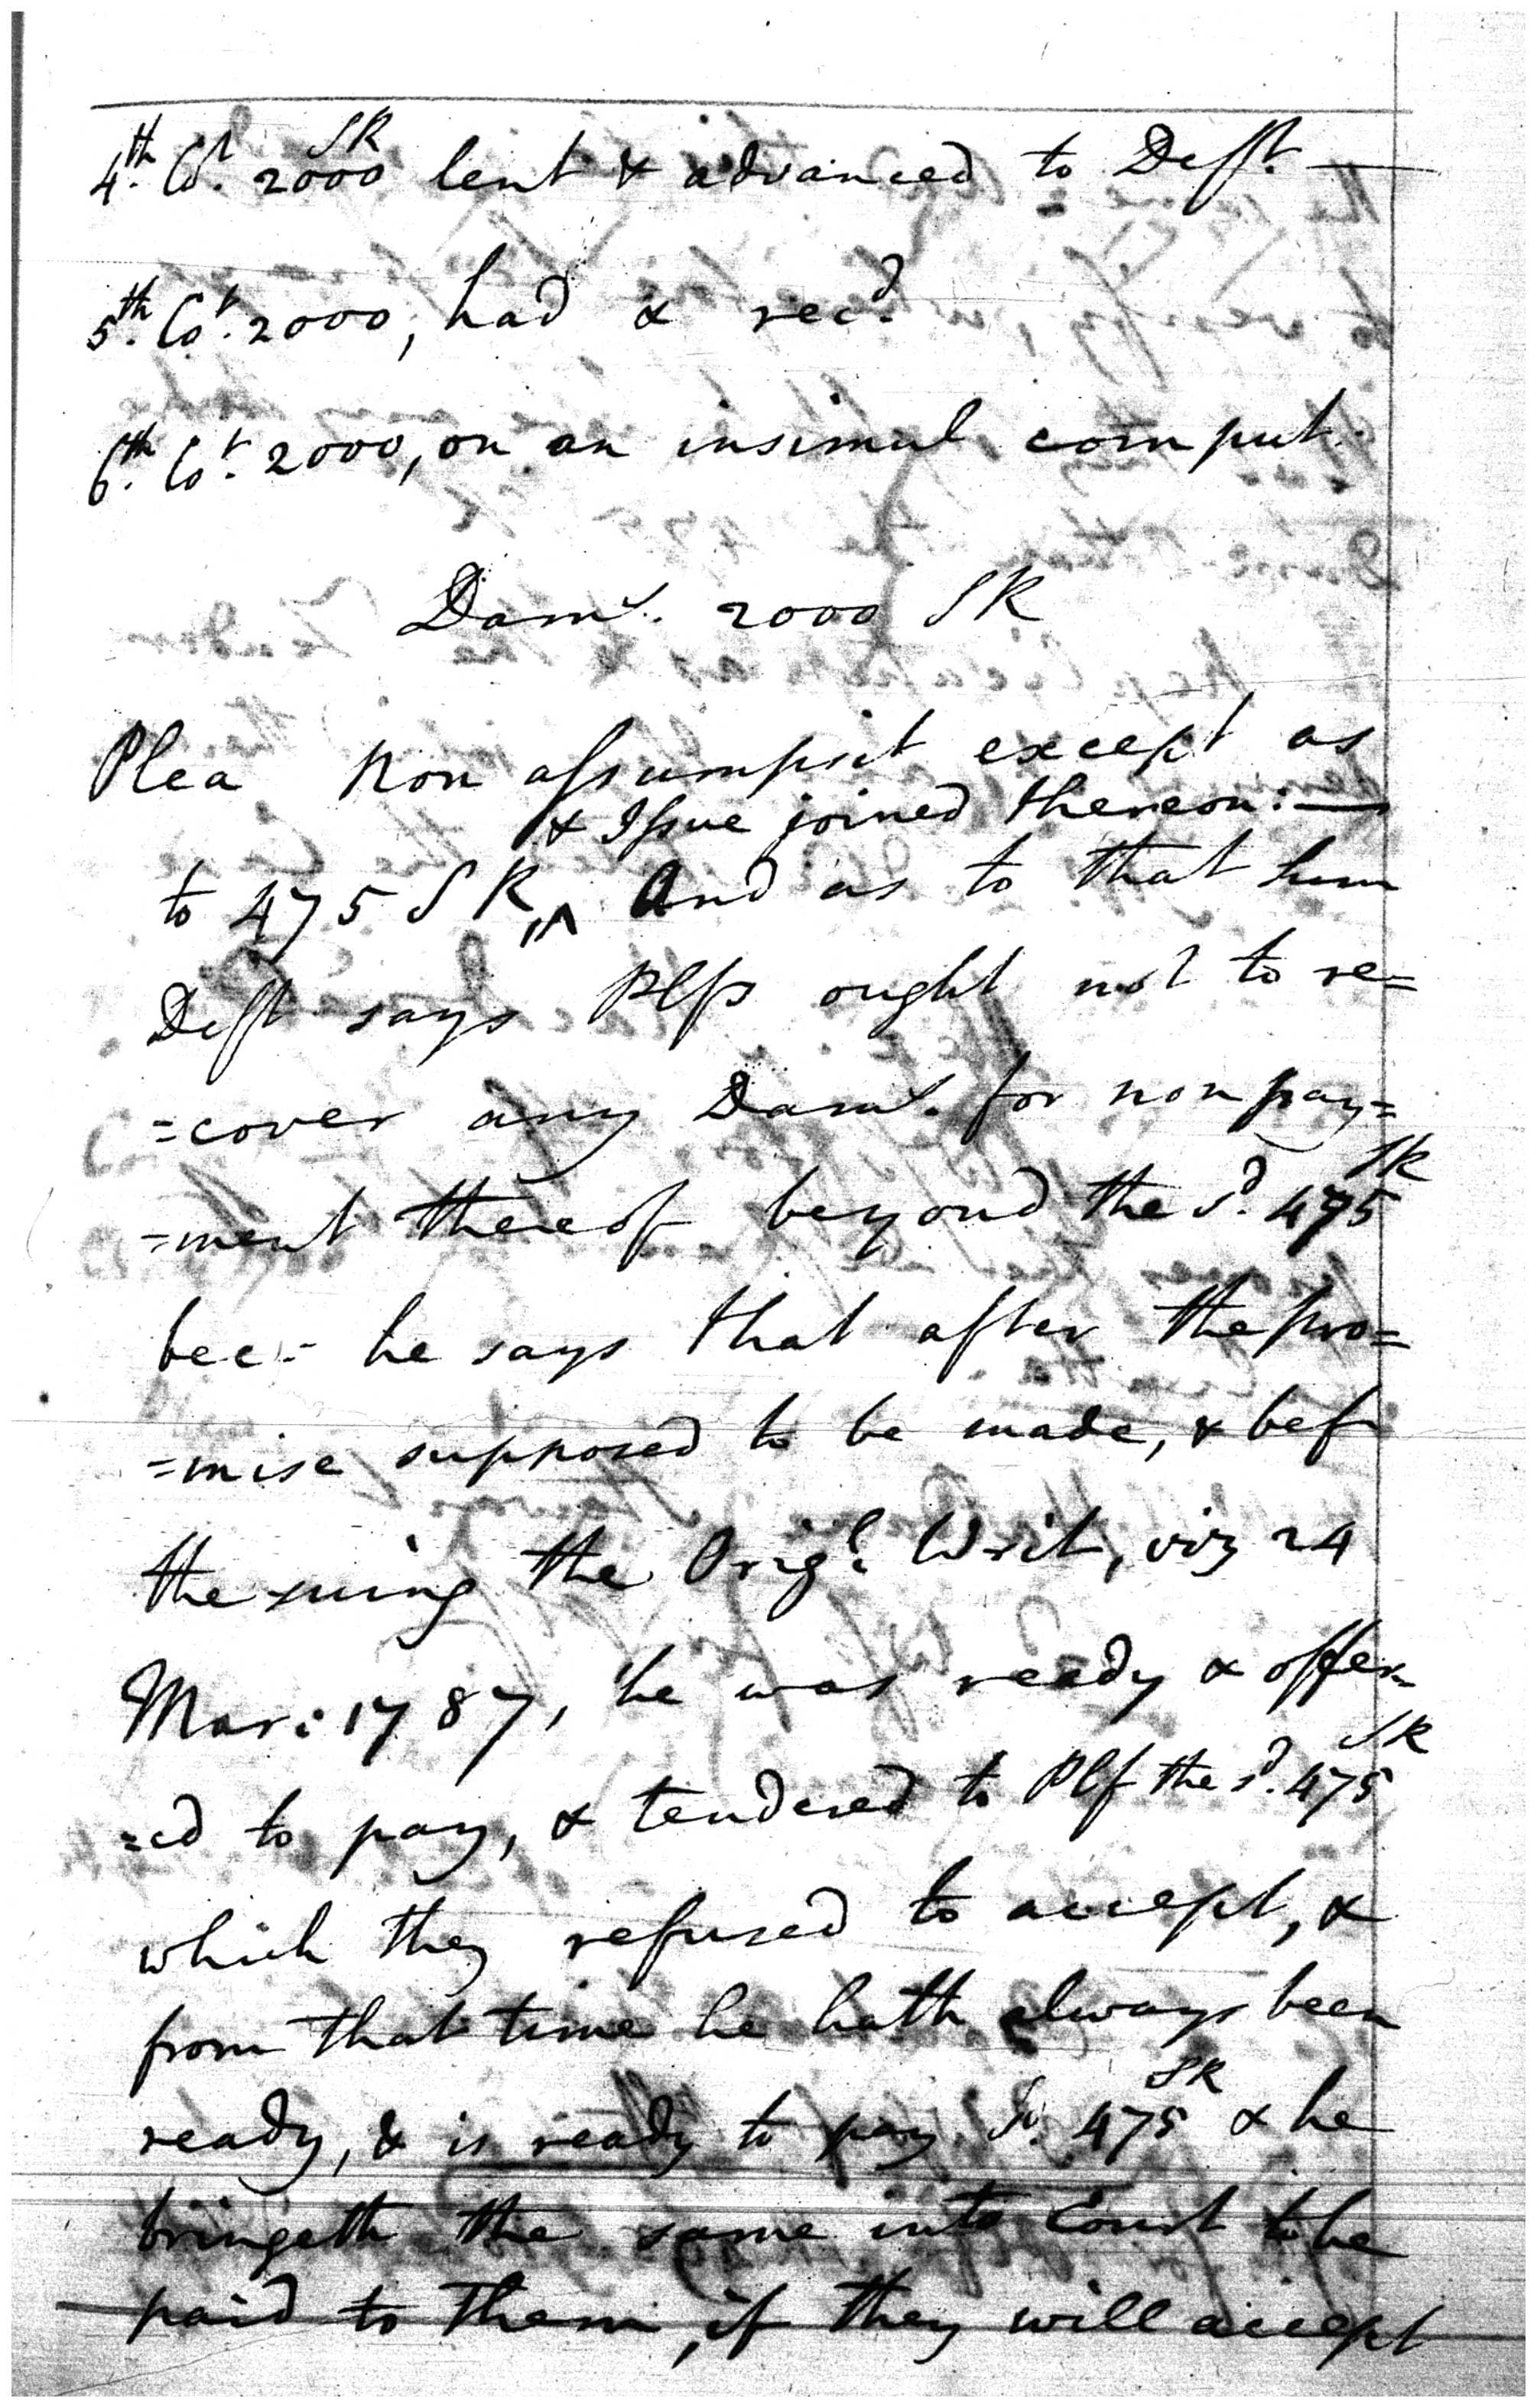 4th. Ct. 2000 SR lent & advanced to Deft. —
5th. Ct. 2000, had & recd.
6th. Ct. 2000, on an insimul comput.
Dams. 2000 SR
Plea Non assumpsit except as
& Issue joined thereon: —
to 475 SR, ^ And as to that sum
Deft says Plfs ought not to re=
=cover any Dams. for non pay=
=ment thereof beyond the sd. 475 SR
bec: he says that after the pro=
=mise supposed to be made, & bef
the suing the Origl. Writ, viz 24
Mar: 1787, he was ready & offer=
=ed to pay, & tendered to Plf the sd. 475 SR
which they refused to accept, &
from that time he hath always been
ready, & is ready to pay sd. 475 SR & he
bringeth the same into Court to be
paid to them, if they will accept